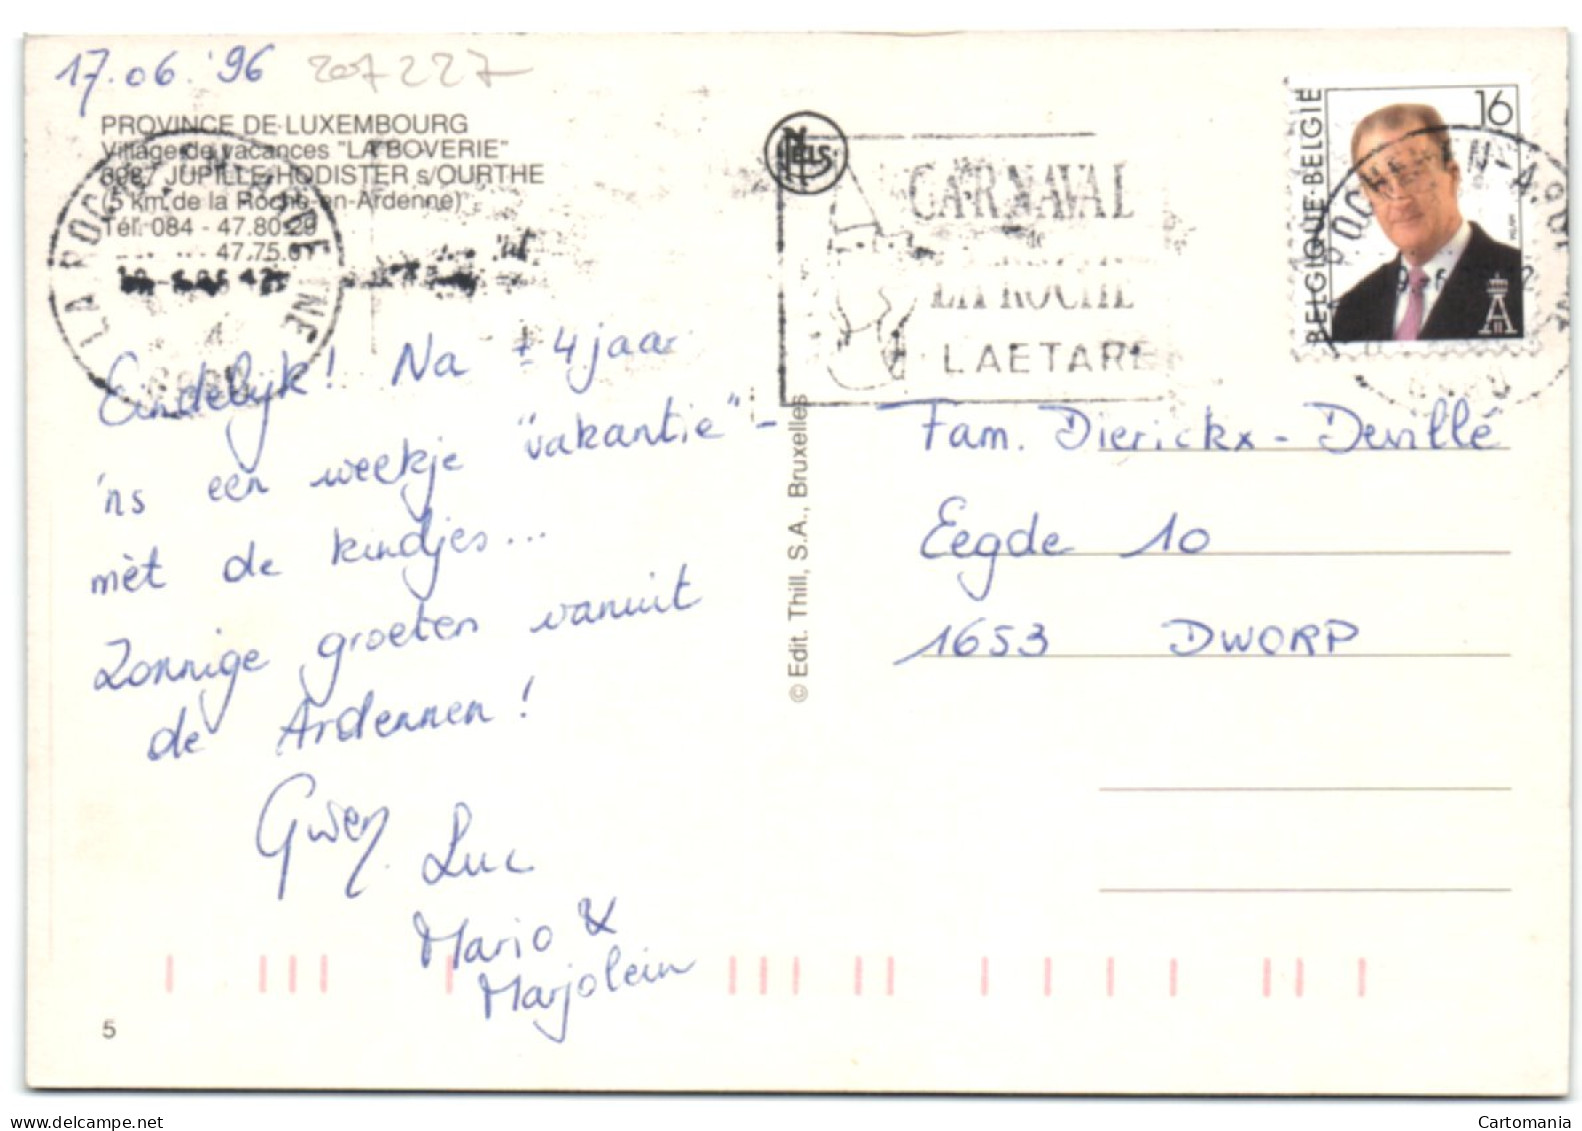 17.06.'96 207227
PROVINCE DE LUXEMBOURG
Village de vacances "LA BOVERIE"
6987 JUPILLE/HODISTER s/OURTHE
(5 km de la Roche-en-Ardenne)
Tél. 084 - 47.80.29
47.75.
NELS
CARNAVAL
de
LA ROCHE
LAETARE
BELGIQUE·BELGIE
16
Eindelijk! Na ± 4 jaar
'ns een weekje "vakantie" -
mèt de kindjes...
Zonnige groeten vanuit
de Ardennen!
Gwen
Luc
Mario &
Marjolein
© Edit. Thill, S.A., Bruxelles
Fam. Dierickx - Devillé
Eegde 10
1653 DWORP
5
www.delcampe.net
Cartomania